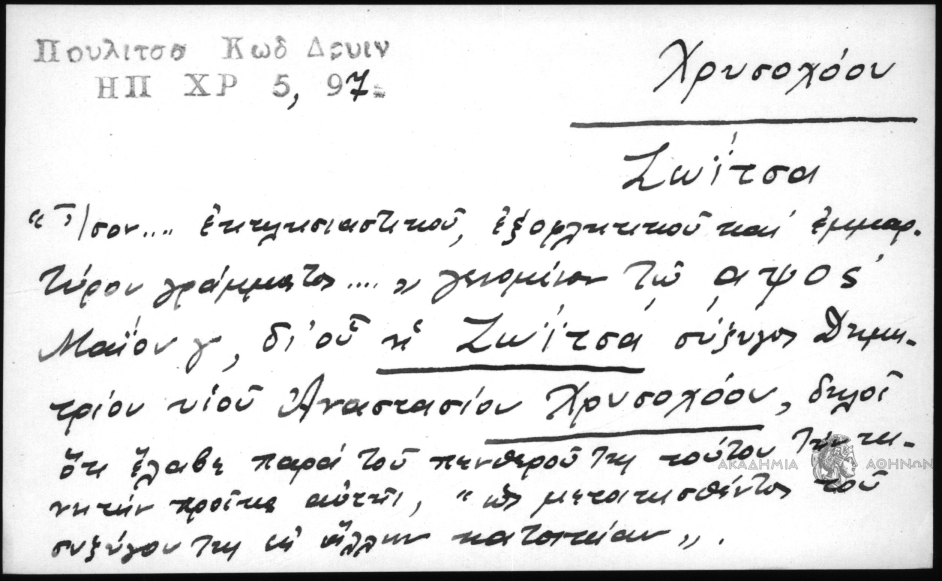 Πουλιτσα Κωδ Δρυιν
ΗΠ ΧΡ 5, 97.
Χρυσοχόου
Ζωΐτσα
“Ἴσον.... ἐκκλησιαστικοῦ, ἐξοφλητικοῦ καί ἐμμαρ-
τύρου γράμματος....„ γενομένου τῷ αψος΄
Μαΐου γ, δι' οὗ ἡ Ζωΐτσα σύζυγος Δημη-
τρίου υἱοῦ Ἀναστασίου Χρυσοχόου, δηλοῖ
ὅτι ἔλαβε παρά τοῦ πενθεροῦ της τούτου τήν κι-
νητήν προῖκα αὐτῆς, “ὡς μετοικισθέντος τοῦ
συζύγου της εἰς ἄλλην κατοικίαν„.
ΑΚΑΔΗΜΙΑ ΑΘΗΝΩΝ